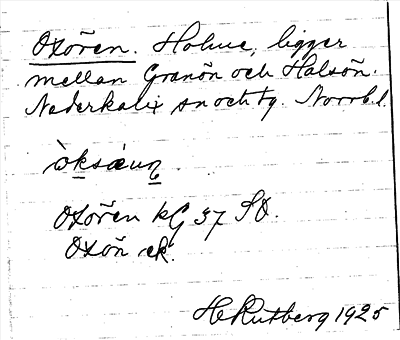 Oxören. Holme, ligger
mellan Granön och Halsön.
Nederkalix sn och tg. Norrb. l.
Oxören kG 37 SO.
Oxön ek.
H Rutberg 1925